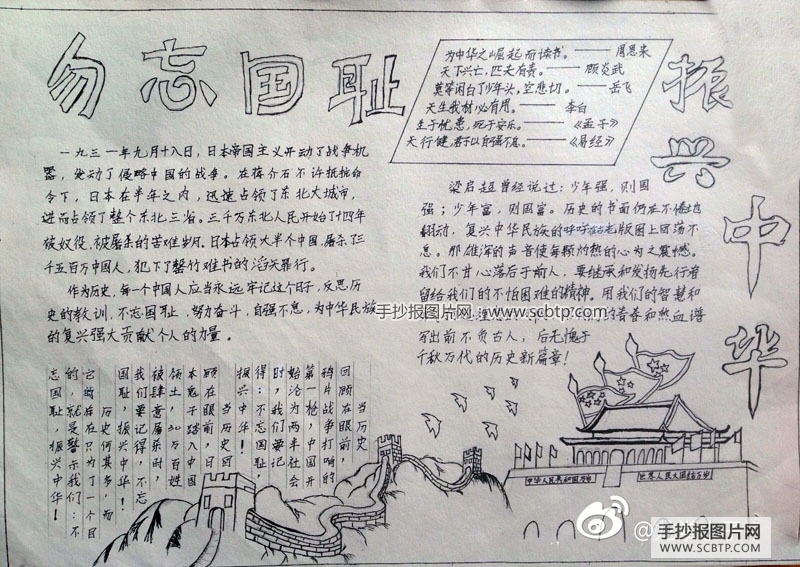 勿忘国耻
为中华之崛起而读书。——周恩来
天下兴亡,匹夫有责。——顾炎武
莫等闲白了少年头,空悲切。——岳飞
天生我材必有用。——李白
生于忧患,死于安乐。——《孟子》
天行健,君子以自强不息。——《易经》
振兴中华
一九三一年九月十八日,日本帝国主义开动了战争机
器,发动了侵略中国的战争。在蒋介石不许抵抗命
令下,日本在半年之内,迅速占领了东北大城市,
进而占领了整个东北三省。三千万东北人民开始了十四年
被奴役,被屠杀的苦难岁月。日本占领大半个中国,屠杀了三
千五百万中国人,犯下了罄竹难书的滔天罪行。
作为历史,每一个中国人应当永远牢记这个日子,反思历
史的教训,不忘国耻,努力奋斗,自强不息,为中华民族
的复兴强大贡献个人的力量。
梁启超曾经说过:少年强,则国
强;少年富,则国富。历史的书面仍在不倦地
翻动,复兴中华民族的呼声在版图上回荡不
息。那雄浑的声音使每颗灼热的心为之震憾。
我们不甘心落后于前人,要继承和发扬先行者
留给我们的不怕困难的精神。用我们的智慧和
青春和热血谱
写出前不负古人,后无愧于
千秋万代的历史新篇章!
当历史
回顾在眼前,
鸦片战争打响的
第一枪,中国开
始沦为两半社会
时,我们要记
得:不忘国耻,
振兴中华!
当历史回
顾在眼前,日
本鬼子踏入中国
领土,30万百姓
被肆意屠杀时,
我们要记得,不忘
国耻,振兴中华!
历史只为
的,就是警示我们:不
忘国耻,振兴中华!
中华人民共和国万岁
世界人民大团结万岁
手抄报图片网 www.scbtp.com
手抄报图片网
WWW.SCBTP.COM